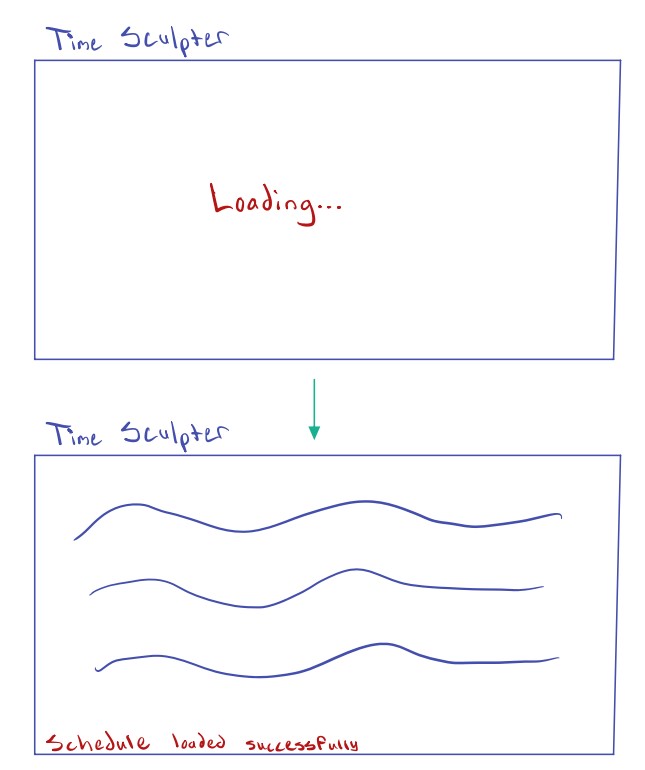 Time Sculpter
Loading...
Time Sculpter
Schedule loaded successfully